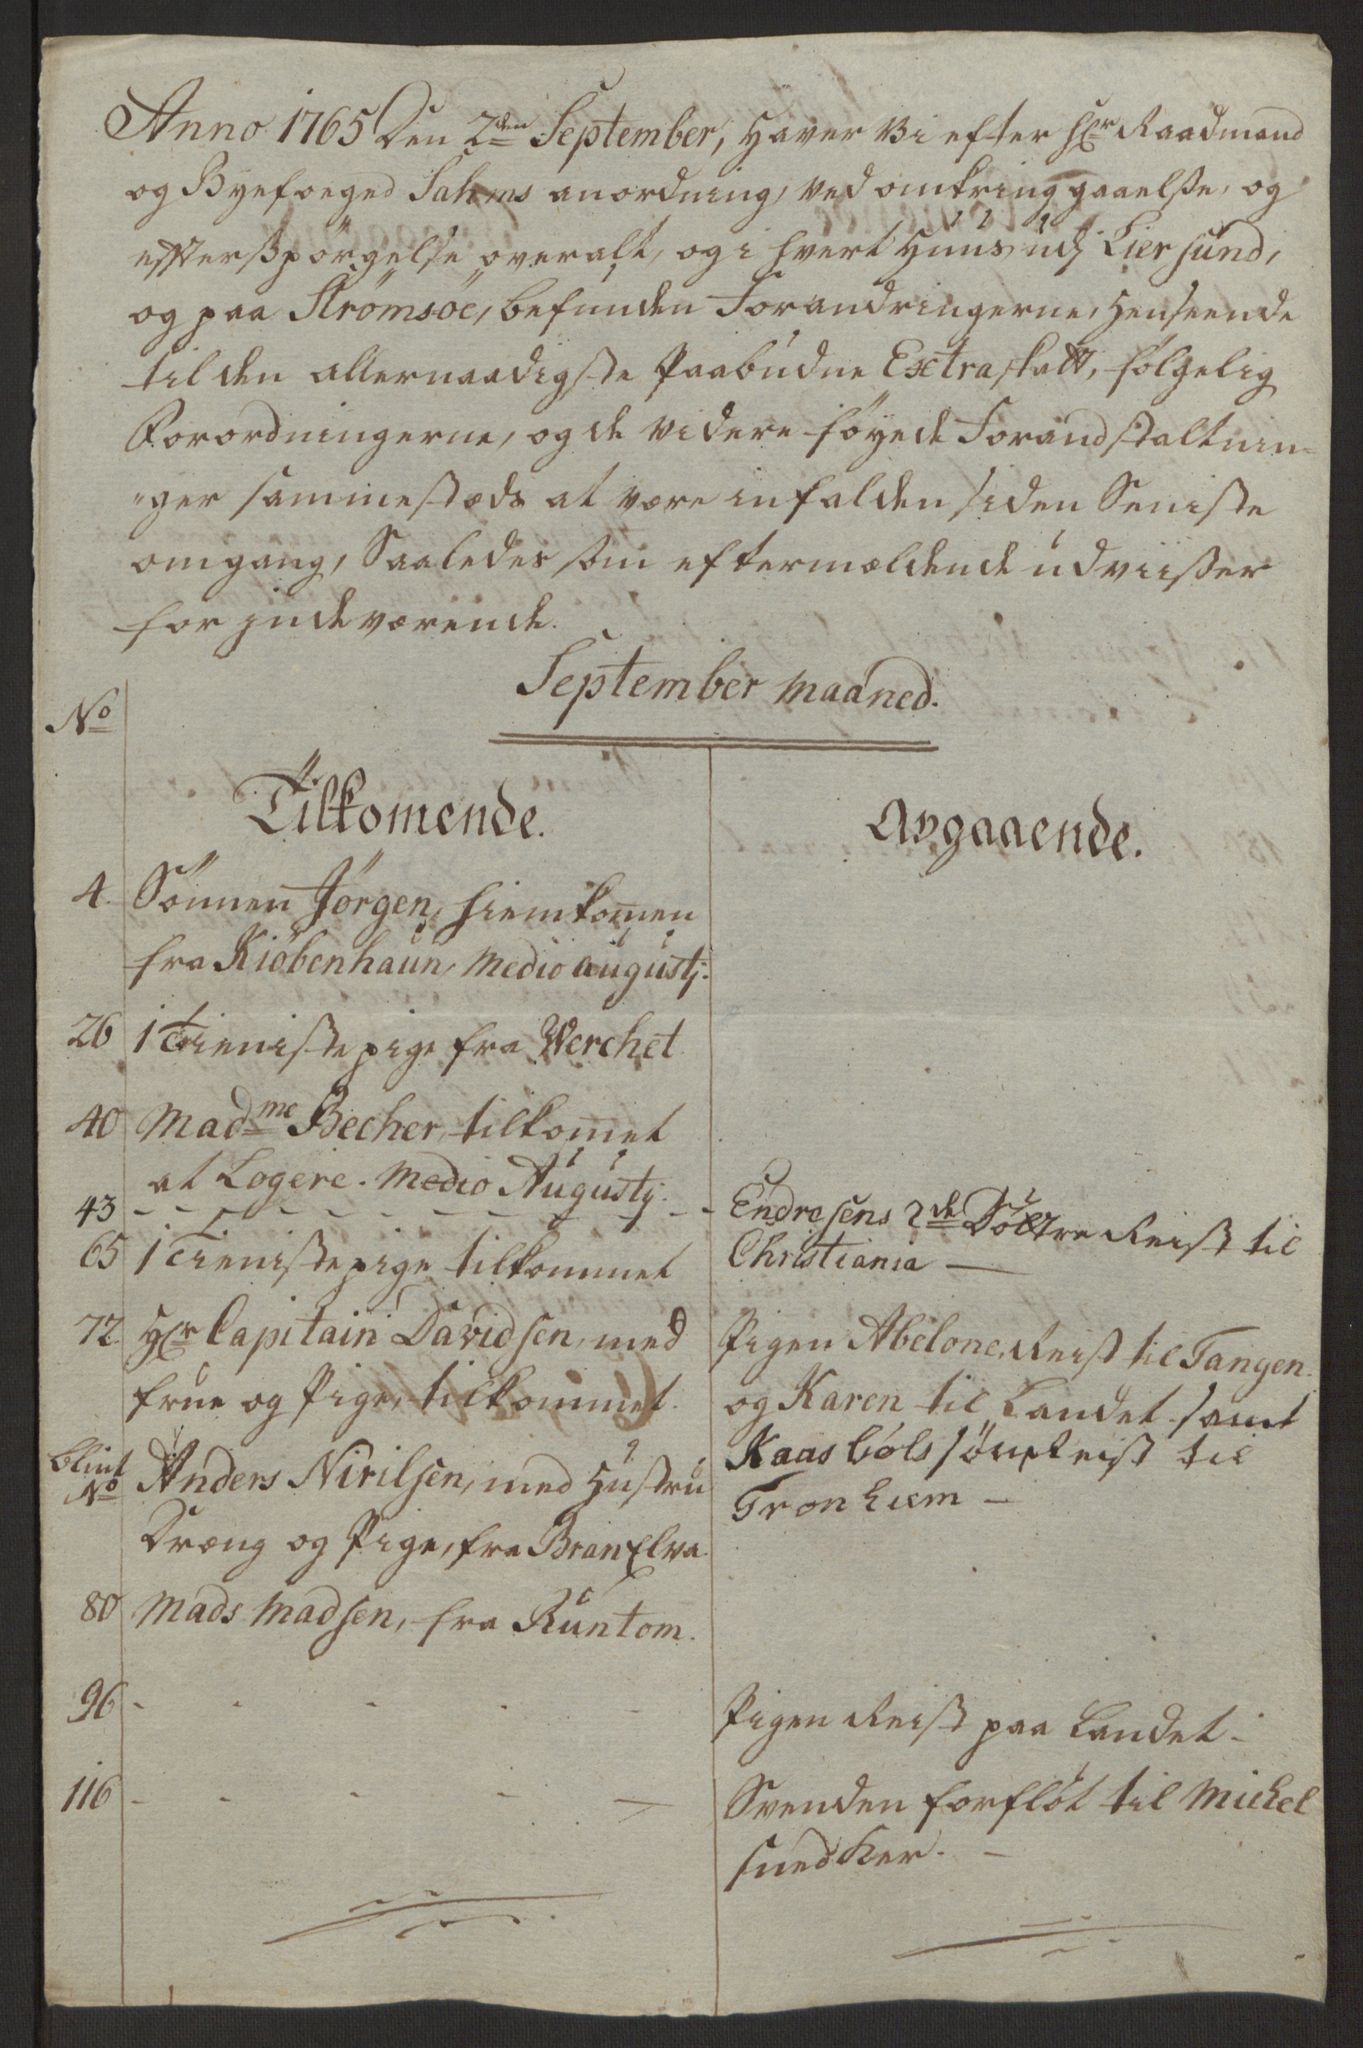 Anno 1765 Den 2den September, Haver Vi efter Hr Raadmand
og Byefoeged Sahms anordning, ved omkringgaaelse, og
efterspörgelse overalt, og i hvert Huus udj Liersund,
og paa Strömsöe, befunden Forandringerne, Henseende
til den allernaadigste Paabudne Extraskatt, fölgelig
Forordningerne, og de videre föyede Forandstaltnin-
"ger sammestæds at være infalden siden Seniste
omgang, Saaledes som eftermældende udviisser
for indeværende.
September Maaned.
No
Tilkomende. Avgaaende.
4. Sönnen Jörgen, hiemkomen
fra Kiöbenhaun, Medio augustj.
26 1 Tieniste pige fra Werchet
40 Madme Becher, tilkomet
at Logere. Medio Augustj.
43 - - - - - - - - Endresens 2de Döttre Reist til
Christiania —
65 1 Tienistepige tilkommet
72. Hr Capitain Davidsen, med
frue og Pige, tilkommet.
Pigen Abelone, Reist til Tangen.
og Karen til Landet samt
Kaasböls sön Reist til
Tronhiem —
blint
No Anders Nirilsen, med Hustru
Dræng og Pige, fra Branxelva.
80 Mads Madsen, fra Runtom.
96 - - - - - Pigen Reist paa Landet -
116 - - - - — Svenden forflöt til Michel
snedker. -